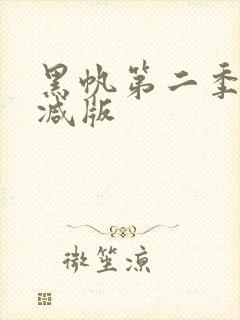 黑帆第二季
减版
微笙凉